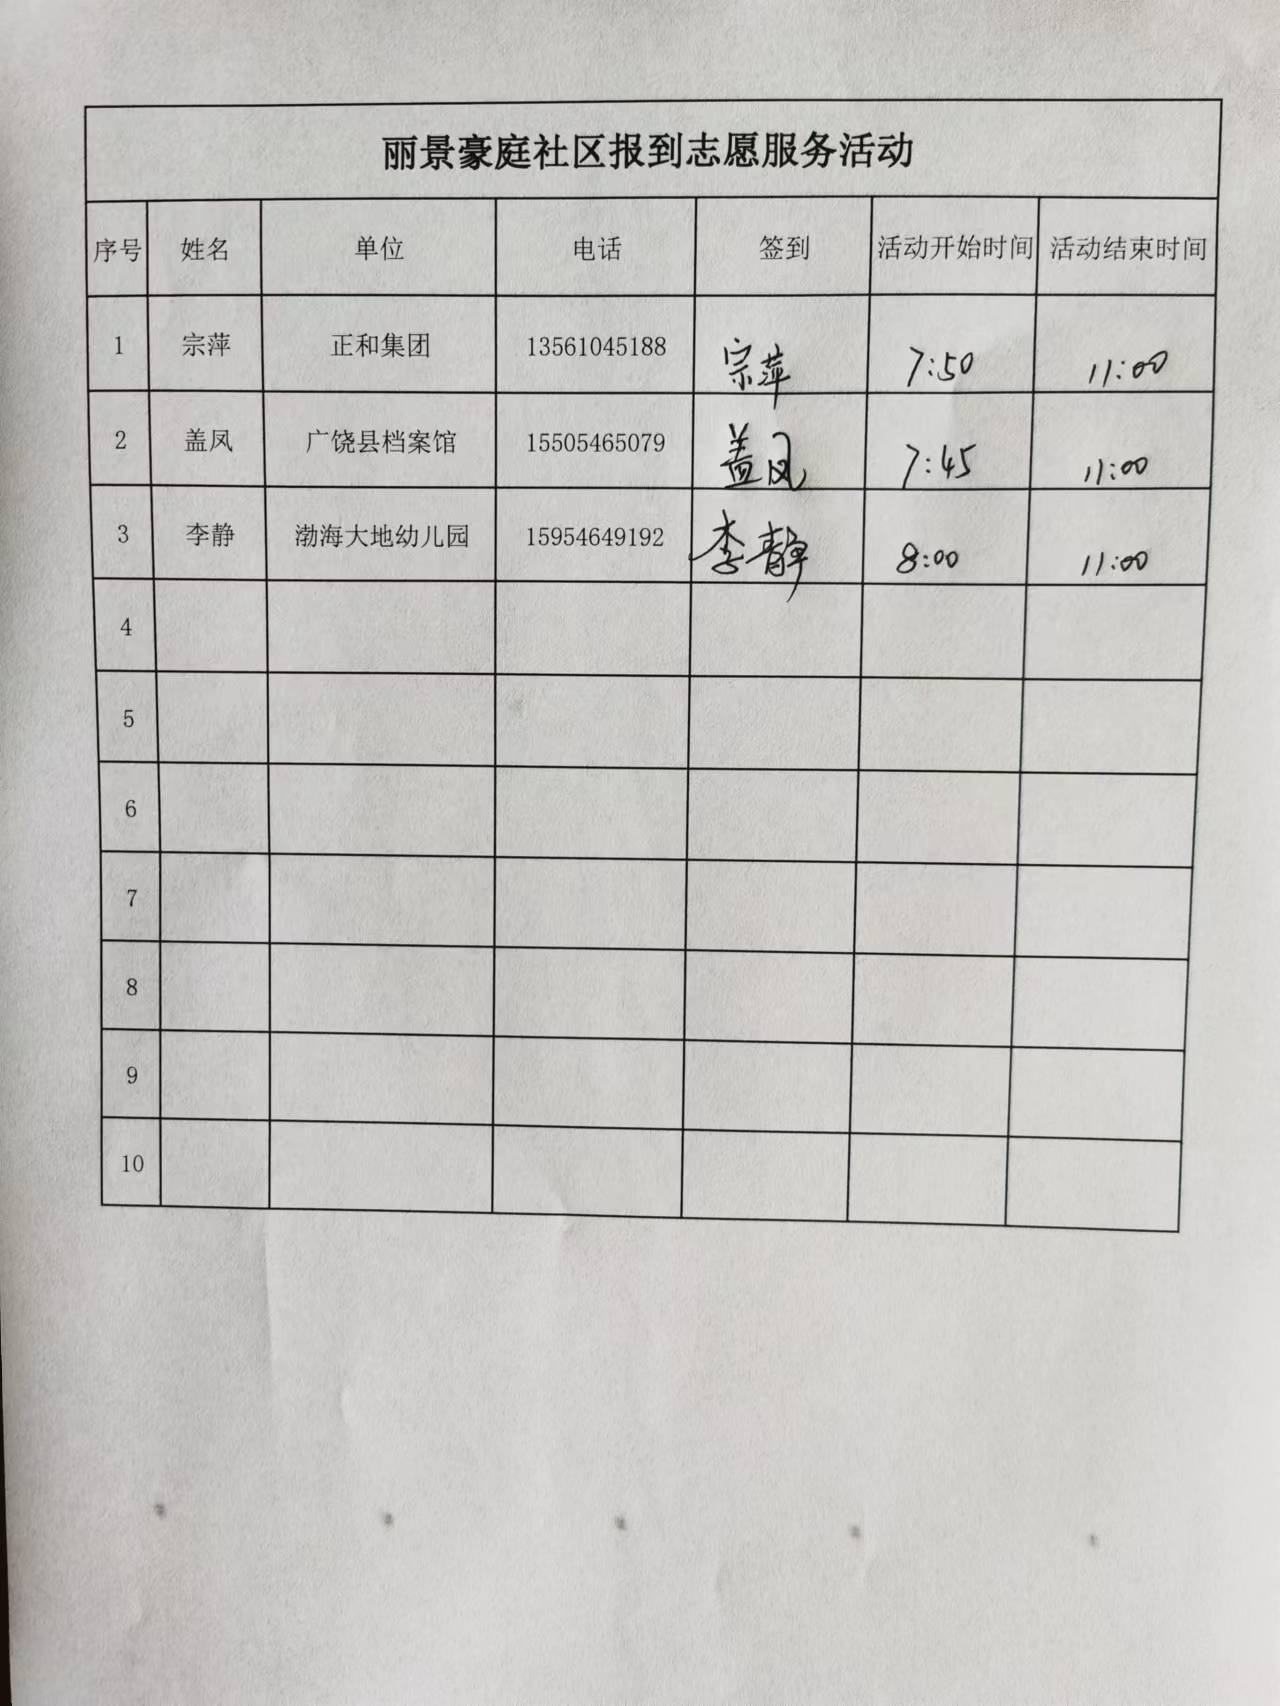 丽景豪庭社区报到志愿服务活动
序号 姓名 单位 电话 签到 活动开始时间 活动结束时间
1 宗萍 正和集团 13561045188 宗萍 7:50 11:00
2 盖凤 广饶县档案馆 15505465079 盖凤 7:45 11:00
3 李静 渤海大地幼儿园 15954649192 李静 8:00 11:00
4
5
6
7
8
9
10